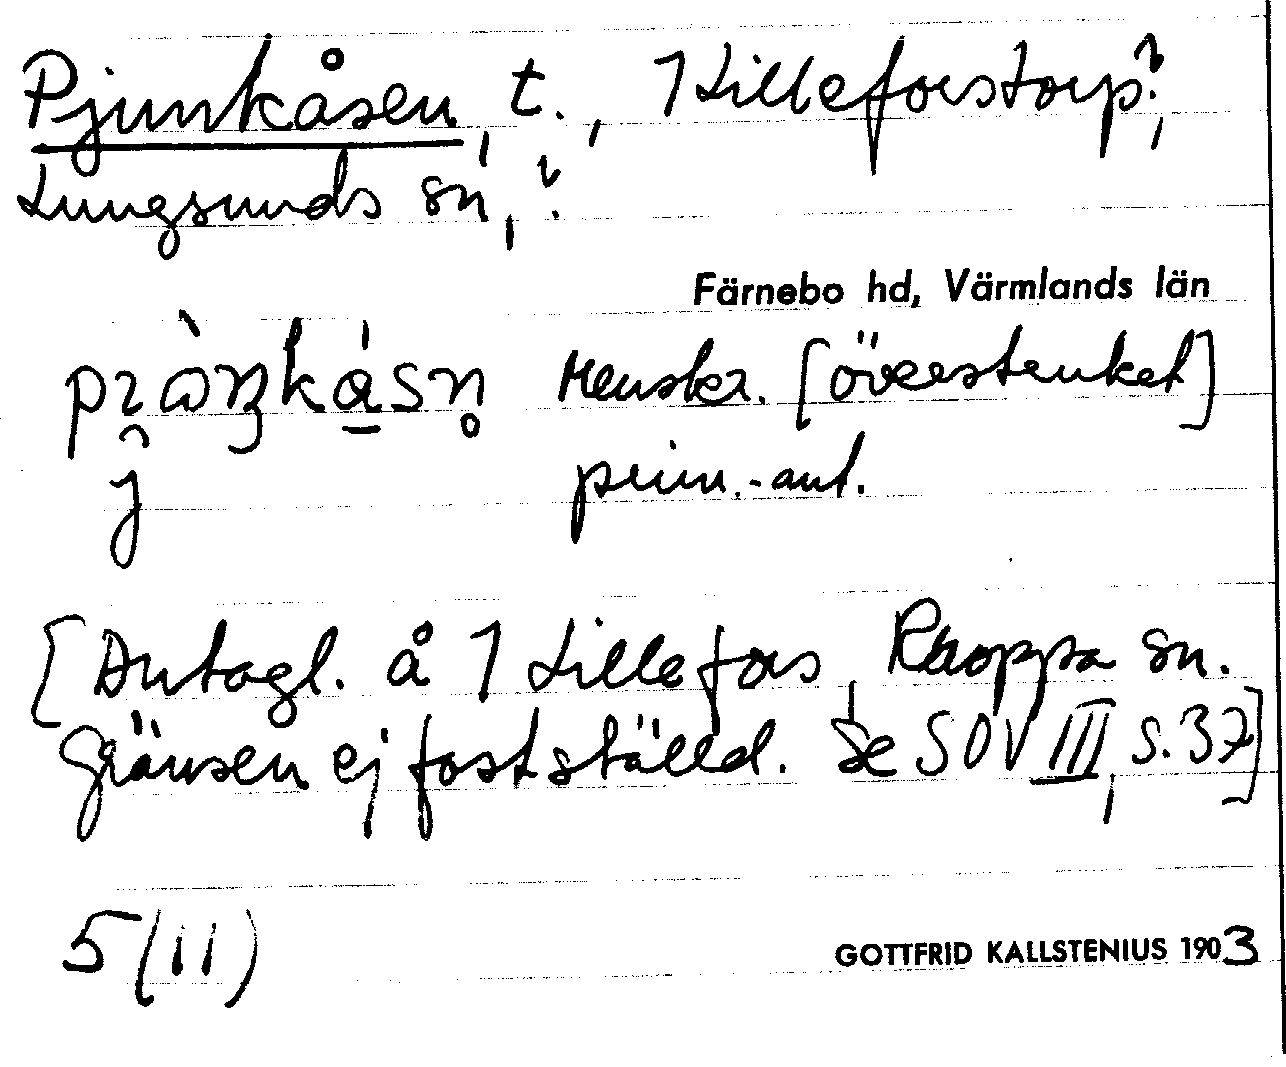 Pjunkåsen, t., 1 Lilleforstorp?,
Lungsunds sn, ?
Färnebo hd, Värmlands län
[överstruket]
j prim.-ant.
[Antagl. å 1 Lillefors, Kroppa sn.
Gränsen ej fastställd. Se SOV III, s. 37]
5 (11)
GOTTFRID KALLSTENIUS 1903